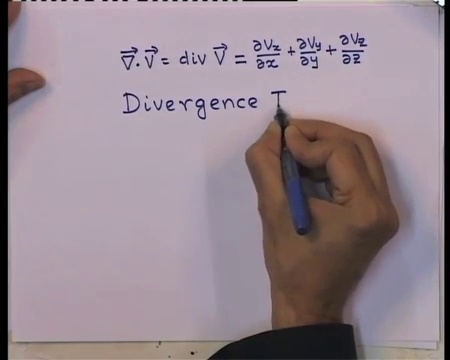 ∇⃗.V⃗ = div V⃗ = ∂Vx/∂x + ∂Vy/∂y + ∂Vz/∂z
Divergence T